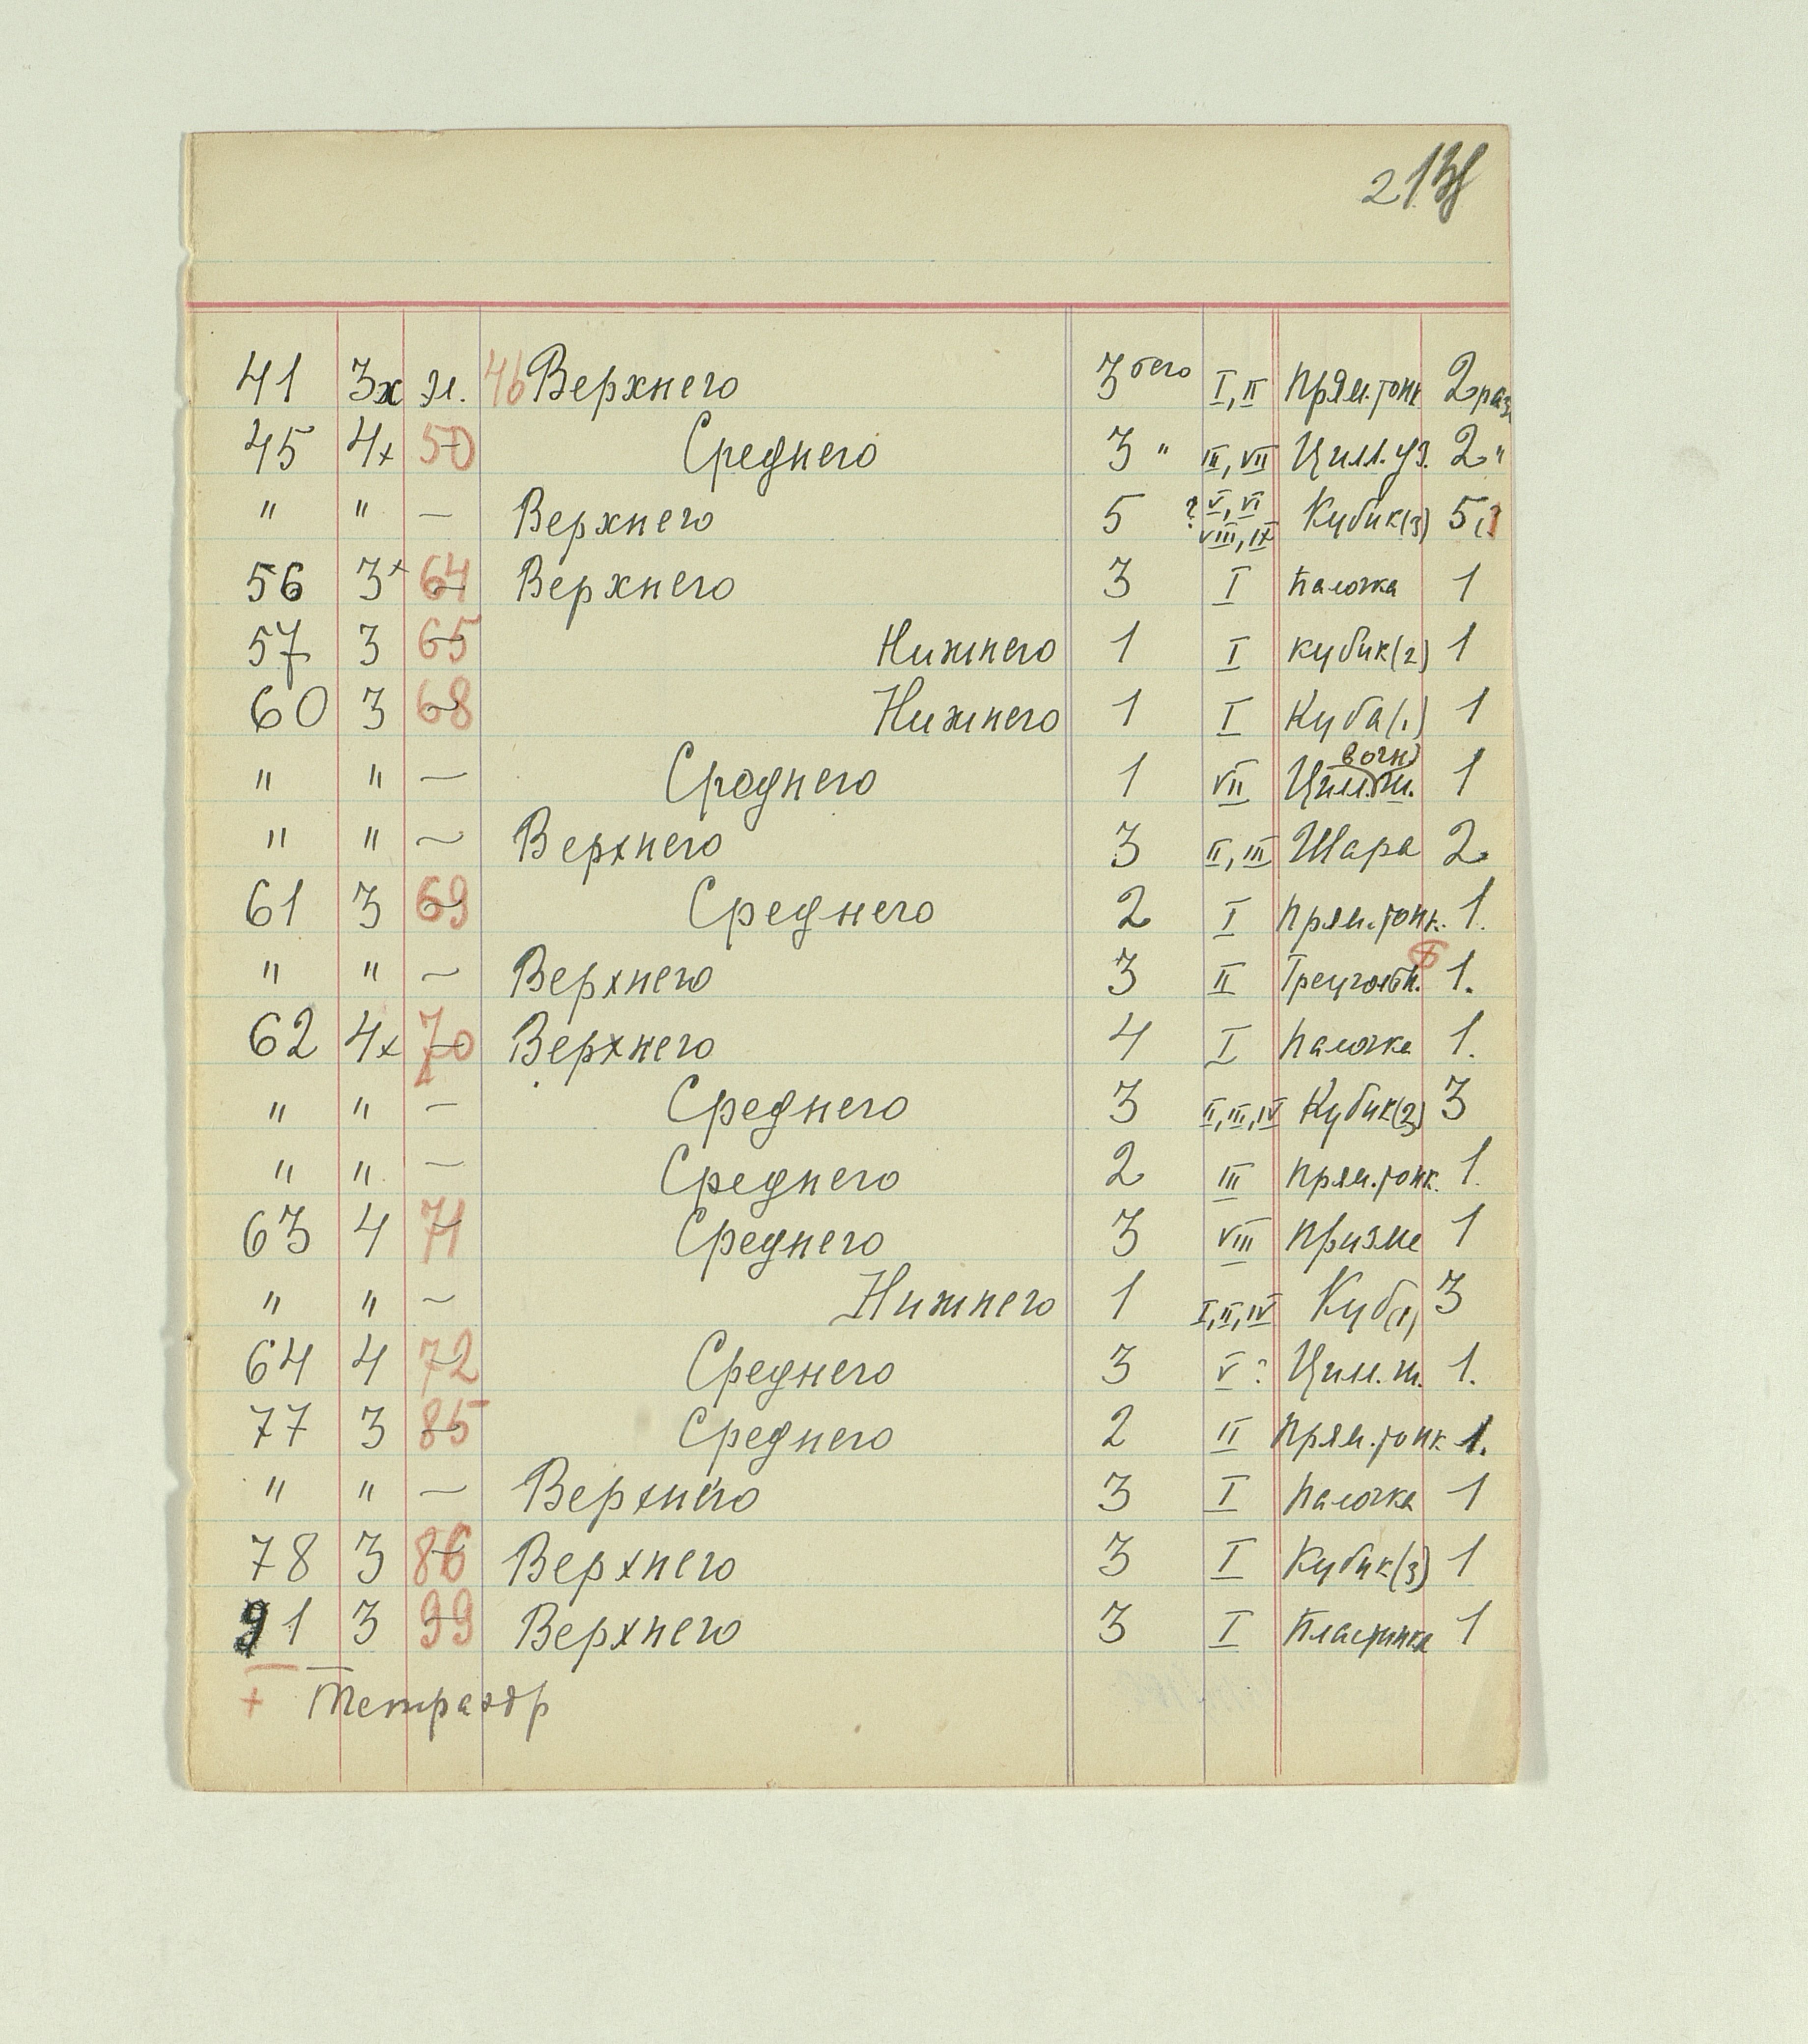 213
41 3х эл. 46 Верхнего 3 его I, II Прям. тонк. 2 раз
45 4х 50 Среднего 3 " III, VII Цилл. уз. 2 "
" " — Верхнего 5 ? V, VI VIII, IX Кубик(3) 5(?
56 3х 64 Верхнего 3 I Палочка 1
57 3 65 Нижнего 1 I кубик(2) 1
60 3 68 Нижнего 1 I Куба(1) 1
" " — Среднего 1 VII Цилл. ш. 1
" " — Верхнего 3 II, III Шара 2
61 3 69 Среднего 2 I Прям. тонк. 1.
" " — Верхнего 3 II Треугольн. + 1.
62 4х 70 Верхнего 4 I Палочка 1.
" " — Среднего 3 II, III, IV Кубик(2) 3
" " — Среднего 2 III Прям. тонк. 1.
63 4 71 Среднего 3 VIII Призме 1
" " — Нижнего 1 I, II, IV Куб(1) 3
64 4 72 Среднего 3 V? Цилл. ш. 1.
77 3 85 Среднего 2 II Прям. тонк. 1.
" " — Верхнего 3 I Палочка 1
78 3 86 Верхнего 3 I Кубик(3) 1
91 3 99 Верхнего 3 I Пластинка 1
+ Тетраэдр